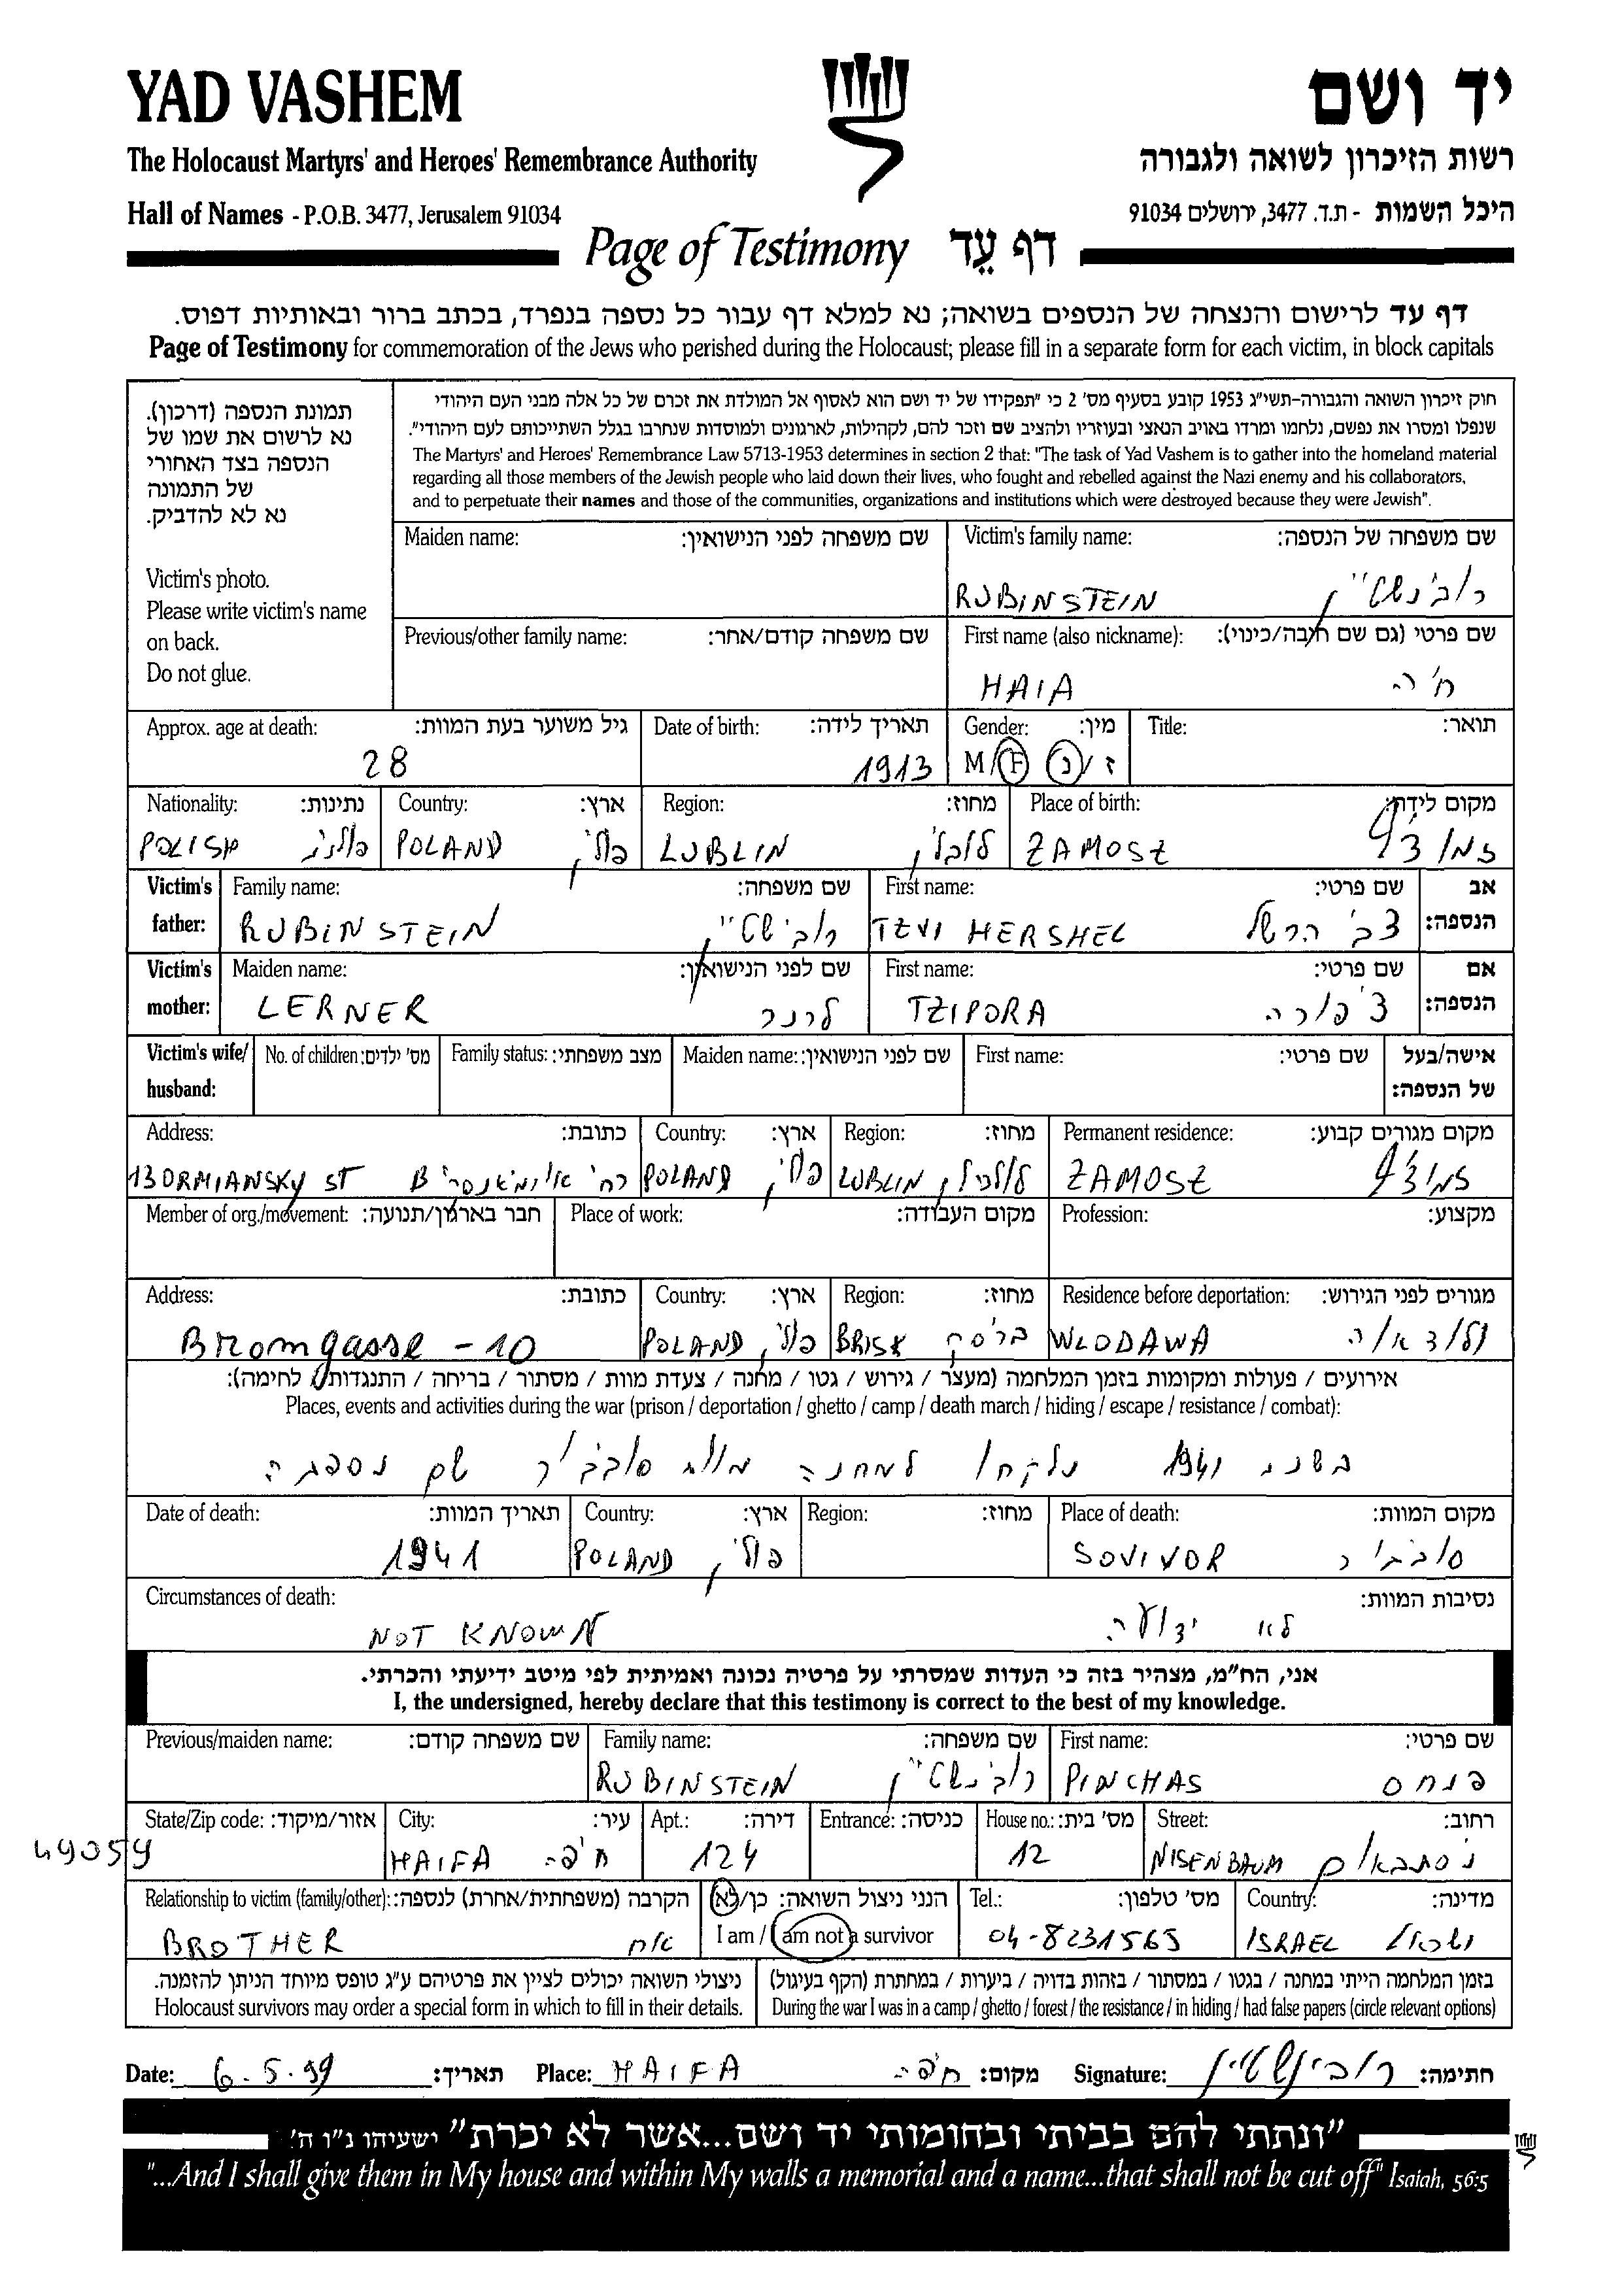 YAD VASHEM
יד ושם
The Holocaust Martyrs' and Heroes' Remembrance Authority
רשות הזיכרון לשואה ולגבורה
Hall of Names - P.O.B. 3477, Jerusalem 91034
היכל השמות - ת.ד. 3477, ירושלים 91034
Page of Testimony דף עֵד
דף עד לרישום והנצחה של הנספים בשואה; נא למלא דף עבור כל נספה בנפרד, בכתב ברור ובאותיות דפוס.
Page of Testimony for commemoration of the Jews who perished during the Holocaust; please fill in a separate form for each victim, in block capitals
תמונת הנספה (דרכון).
נא לרשום את שמו של
הנספה בצד האחורי
של התמונה
נא לא להדביק.
Victim's photo.
Please write victim's name
on back.
Do not glue.
חוק זיכרון השואה והגבורה-תשי"ג 1953 קובע בסעיף מס' 2 כי "תפקידו של יד ושם הוא לאסוף אל המולדת את זכרם של כל אלה מבני העם היהודי
שנפלו ומסרו את נפשם, נלחמו ומרדו באויב הנאצי ובעוזריו ולהציב שם וזכר להם, לקהילות, לארגונים ולמוסדות שנחרבו בגלל השתייכותם לעם היהודי".
The Martyrs' and Heroes' Remembrance Law 5713-1953 determines in section 2 that: "The task of Yad Vashem is to gather into the homeland material
regarding all those members of the Jewish people who laid down their lives, who fought and rebelled against the Nazi enemy and his collaborators,
and to perpetuate their names and those of the communities, organizations and institutions which were destroyed because they were Jewish".
Maiden name: שם משפחה לפני הנישואין:
Victim's family name: שם משפחה של הנספה:
RUBINSTEIN רובינשטיין
Previous/other family name: שם משפחה קודם/אחר:
First name (also nickname): שם פרטי (גם שם חיבה/כינוי):
HAIA חיה
Approx. age at death: גיל משוער בעת המוות:
28
Date of birth: תאריך לידה:
1913
Gender: מין:
M/F ז/נ
Title: תואר:
Nationality: נתינות:
POLISH פולני
Country: ארץ:
POLAND פולין
Region: מחוז:
LUBLIN לובלין
Place of birth: מקום לידה:
ZAMOSZ זמושץ
Victim's father: אב הנספה:
Family name: שם משפחה:
RUBINSTEIN רובינשטיין
First name: שם פרטי:
TZVI HERSHEL צבי הרשל
Victim's mother: אם הנספה:
Maiden name: שם לפני הנישואין:
LERNER לרנר
First name: שם פרטי:
TZIPORA ציפורה
Victim's wife/husband: אישה/בעל של הנספה:
No. of children: מס' ילדים:
Family status: מצב משפחתי:
Maiden name: שם לפני הנישואין:
First name: שם פרטי:
Address: כתובת:
13 ORMIANSKY ST רח'
Country: ארץ:
POLAND פולין
Region: מחוז:
LUBLIN לובלין
Permanent residence: מקום מגורים קבוע:
ZAMOSZ
Member of org./movement: חבר בארגון/תנועה:
Place of work: מקום העבודה:
Profession: מקצוע:
Address: כתובת:
Bromgasse - 10
Country: ארץ:
POLAND פולין
Region: מחוז:
BRISK בריסק
Residence before deportation: מגורים לפני הגירוש:
WLODAWA
אירועים / פעולות ומקומות בזמן המלחמה (מעצר / גירוש / גטו / מחנה / צעדת מוות / מסתור / בריחה / התנגדות / לחימה):
Places, events and activities during the war (prison / deportation / ghetto / camp / death march / hiding / escape / resistance / combat):
בשנת 1941 נלקחו למחנה מוות סוביבור שם נספתה
Date of death: תאריך המוות:
1941
Country: ארץ:
POLAND פולין
Region: מחוז:
Place of death: מקום המוות:
SOVIVOR סוביבור
Circumstances of death: נסיבות המוות:
NOT KNOWN לא ידועה
אני, הח"מ, מצהיר בזה כי העדות שמסרתי על פרטיה נכונה ואמיתית לפי מיטב ידיעתי והכרתי.
I, the undersigned, hereby declare that this testimony is correct to the best of my knowledge.
Previous/maiden name: שם משפחה קודם:
Family name: שם משפחה:
RUBINSTEIN רובינשטיין
First name: שם פרטי:
PINCHAS פנחס
State/Zip code: אזור/מיקוד:
49059
City: עיר:
HAIFA חיפה
Apt.: דירה:
124
Entrance: כניסה:
House no.: מס' בית:
12
Street: רחוב:
NISENBAUM ניסנבאום
Relationship to victim (family/other): הקרבה (משפחתית/אחרת) לנספה:
BROTHER אח
הנני ניצול השואה: כן/לא
I am / am not a survivor
Tel.: מס' טלפון:
04-8231565
Country: מדינה:
ISRAEL ישראל
ניצולי השואה יכולים לציין את פרטיהם ע"ג טופס מיוחד הניתן להזמנה.
Holocaust survivors may order a special form in which to fill in their details.
בזמן המלחמה הייתי במחנה / בגטו / במסתור / בזהות בדויה / ביערות / במחתרת (הקף בעיגול)
During the war I was in a camp / ghetto / forest / the resistance / in hiding / had false papers (circle relevant options)
Date: 6.5.99 תאריך: Place: HAIFA חיפה מקום: Signature: רובינשטיין חתימה:
"ונתתי להם בביתי ובחומותי יד ושם...אשר לא יכרת" ישעיהו נ"ו ה'
"...And I shall give them in My house and within My walls a memorial and a name...that shall not be cut off" Isaiah, 56:5